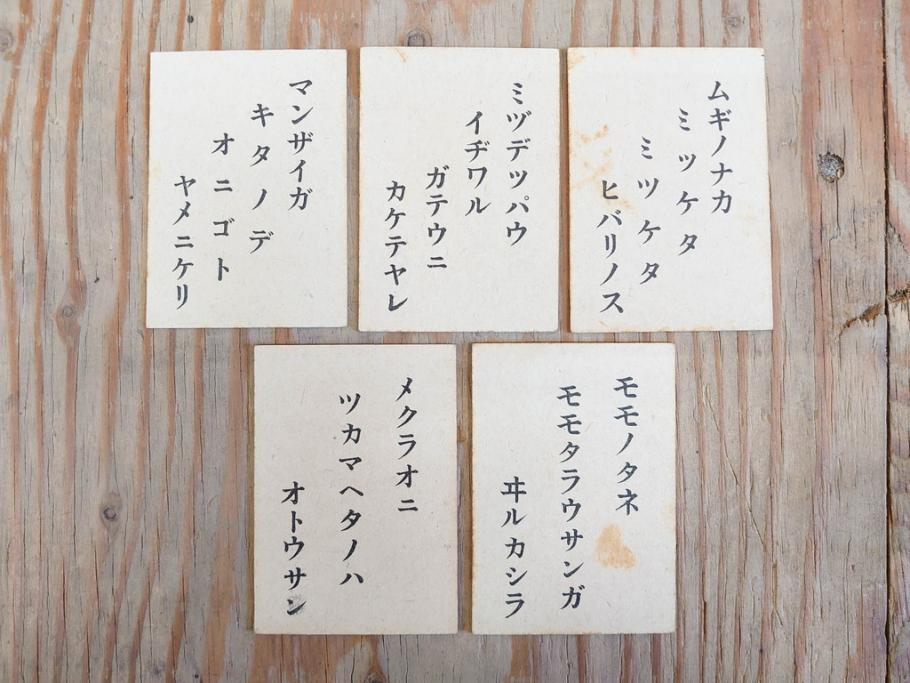 ムギノナカ
ミツケタ
ミツケタ
ヒバリノス
ミヅデツパウ
イヂワル
ガテウニ
カケテヤレ
マンザイガ
キタノデ
オニゴト
ヤメニケリ
モモノタネ
モモタラウサンガ
ヰルカシラ
メクラオニ
ツカマヘタノハ
オトウサン